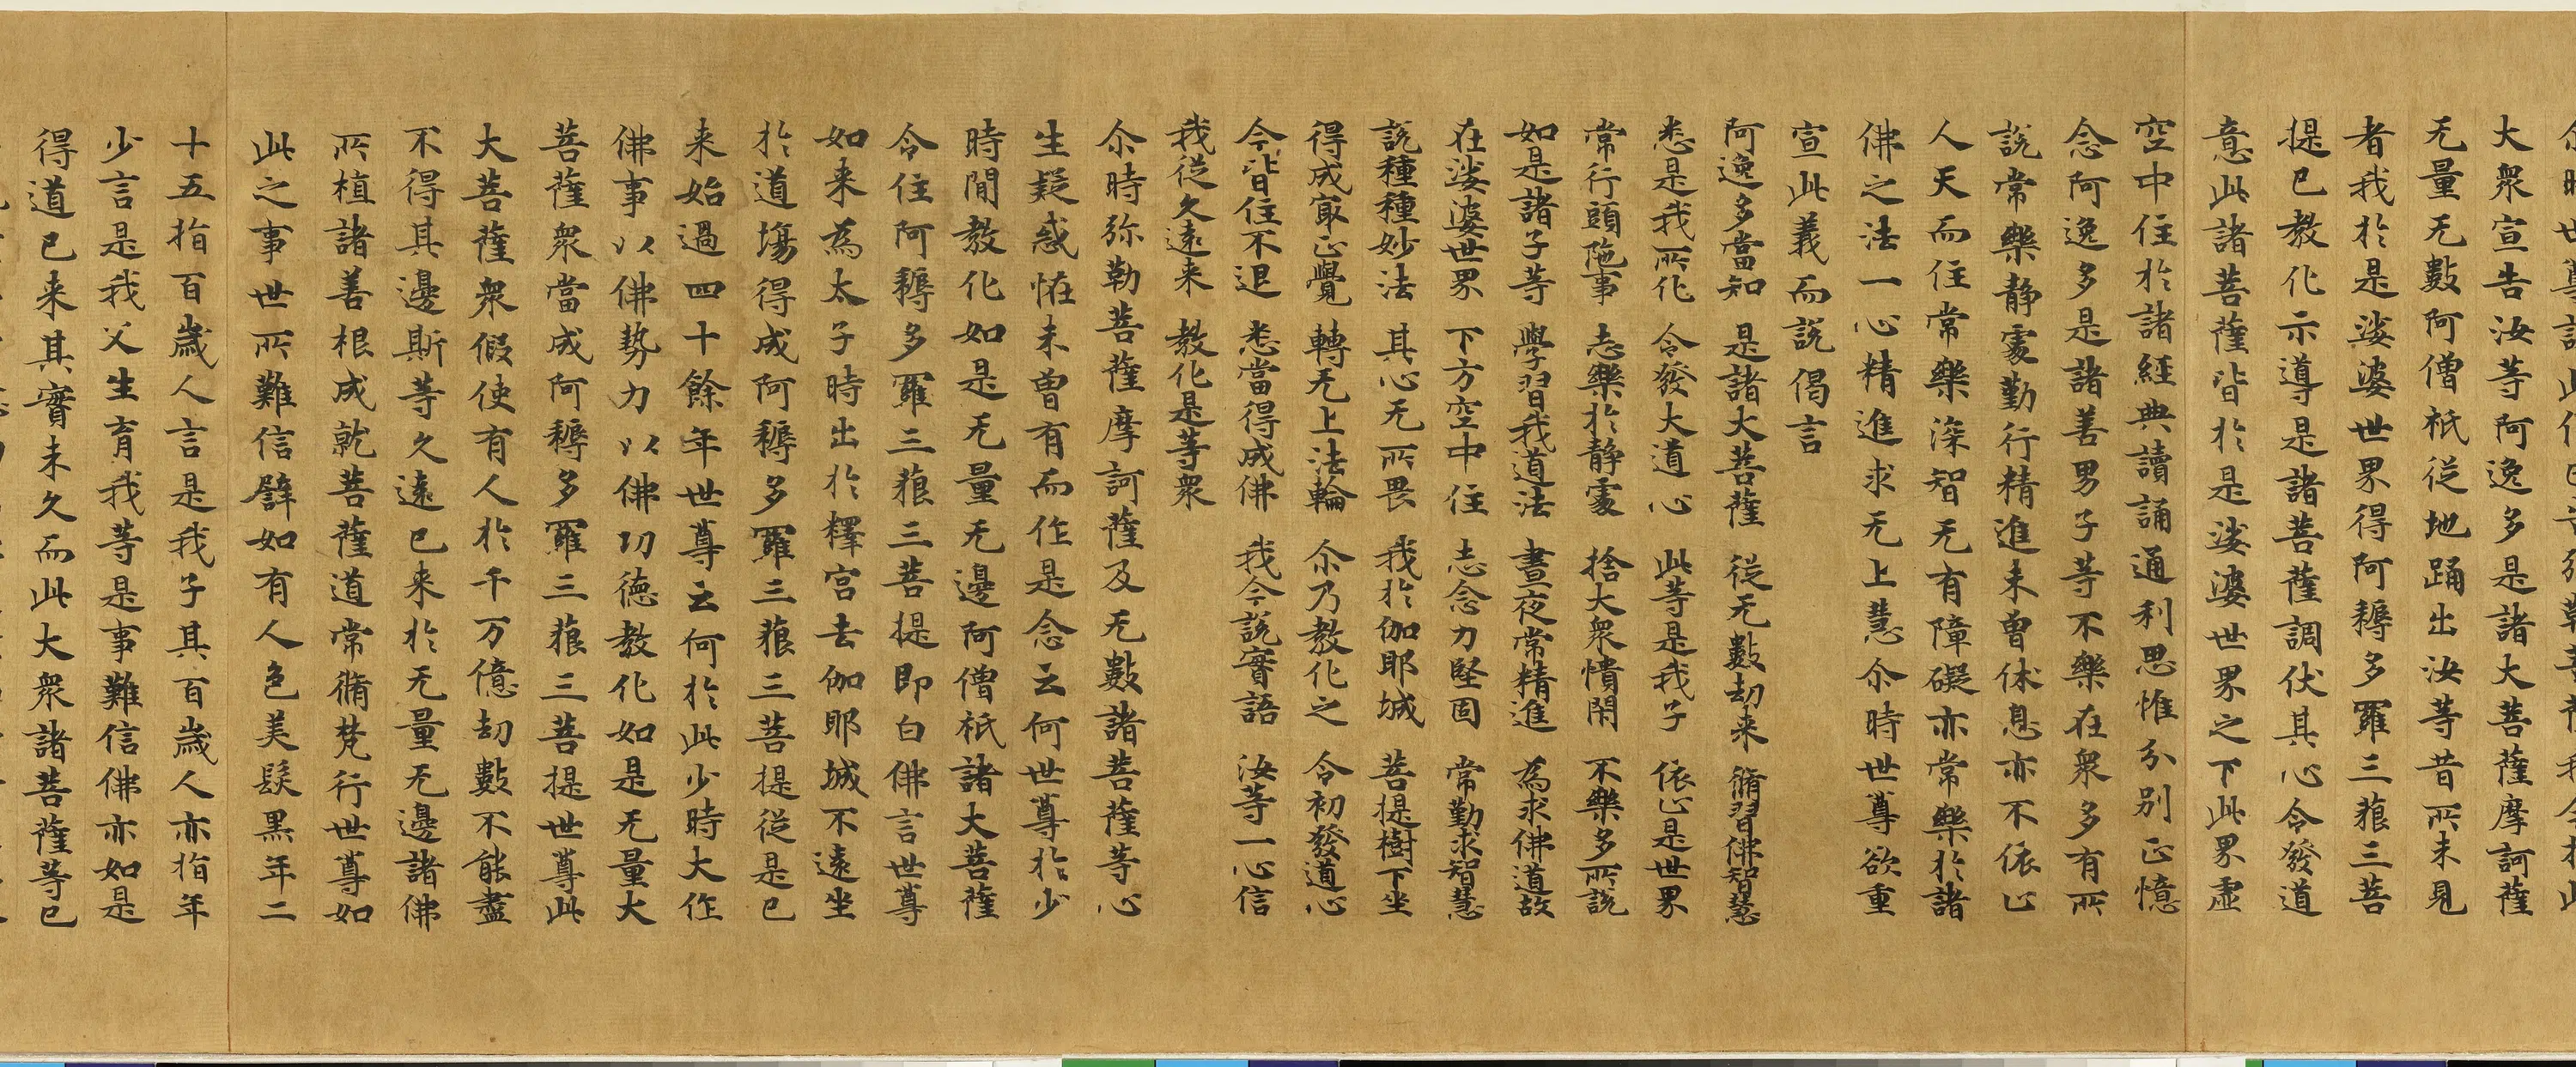 大衆宣告汝等阿逸多是諸大菩薩摩訶薩
无量无數阿僧祇従地踊出汝等昔所未見
者我於是娑婆世界得阿耨多羅三藐三菩
提已教化示導是諸菩薩調伏其心令發道
意此諸菩薩皆於是娑婆世界之下此界虛
空中住於諸經典讀誦通利思惟分別正憶
念阿逸多是諸善男子等不樂在衆多有所
說常樂静處勤行精進未曽休息亦不依止
人天而住常樂深智无有障礙亦常樂於諸
佛之法一心精進求无上慧尒時世尊欲重
宣此義而說偈言
阿逸多當知　是諸大菩薩　従无數劫来　脩習佛智慧
悉是我所化　令發大道心　此等是我子　依止是世界
常行頭陁事　志樂於静處　捨大衆憒閙　不樂多所說
如是諸子等　學習我道法　晝夜常精進　為求佛道故
在娑婆世界　下方空中住　志念力堅固　常勤求智慧
說種種妙法　其心无所畏　我於伽耶城　菩提樹下坐
得成㝡正覺　轉无上法輪　尒乃教化之　令初發道心
今皆住不退　悉當得成佛　我今說實語　汝等一心信
我従久遠来　教化是等衆
尒時弥勒菩薩摩訶薩及无數諸菩薩等心
生疑惑恠未曽有而作是念云何世尊於少
時間教化如是无量无邊阿僧祇諸大菩薩
令住阿耨多羅三藐三菩提即白佛言世尊
如来為太子時出於釋宫去伽耶城不遠坐
於道場得成阿耨多羅三藐三菩提従是已
来始過四十餘年世尊云何於此少時大作
佛事以佛勢力以佛功徳教化如是无量大
菩薩衆當成阿耨多羅三藐三菩提世尊此
大菩薩衆假使有人於千万億劫數不能盡
不得其邊斯等久遠已来於无量无邊諸佛
所植諸善根成就菩薩道常脩梵行世尊如
此之事世所難信譬如有人色美髮黑年二
十五指百歲人言是我子其百歲人亦指年
少言是我父生育我等是事難信佛亦如是
得道已来其實未久而此大衆諸菩薩等已